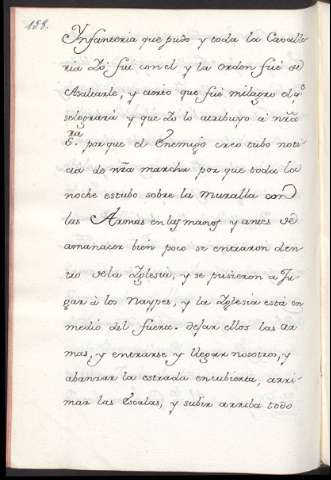 158.
Ynfanteria que pudo y toda la Cavalle
ria Yo fui con el y la orden fué de
Asaltarle, y cierto que fué milagro el q.e
selograra y que Yo lo atribuyo á nr̃a
S.ra porque el Enemigo creo tubo noti
cia de nr̃a marcha porque toda la
noche estubo sobre la muralla con
las Armas en las manos y antes de
amanacer bien poco se entraron den
tro dela Yglesia, y se pusieron a Ju
gar á los Naypes, y la Yglesia está en
medio del fuerte. dejar ellos las ar
mas, y entrarse y llegar nosotros, y
abanzar la estrada encubierta, arri
mar las Escalas, y subir arriba todo